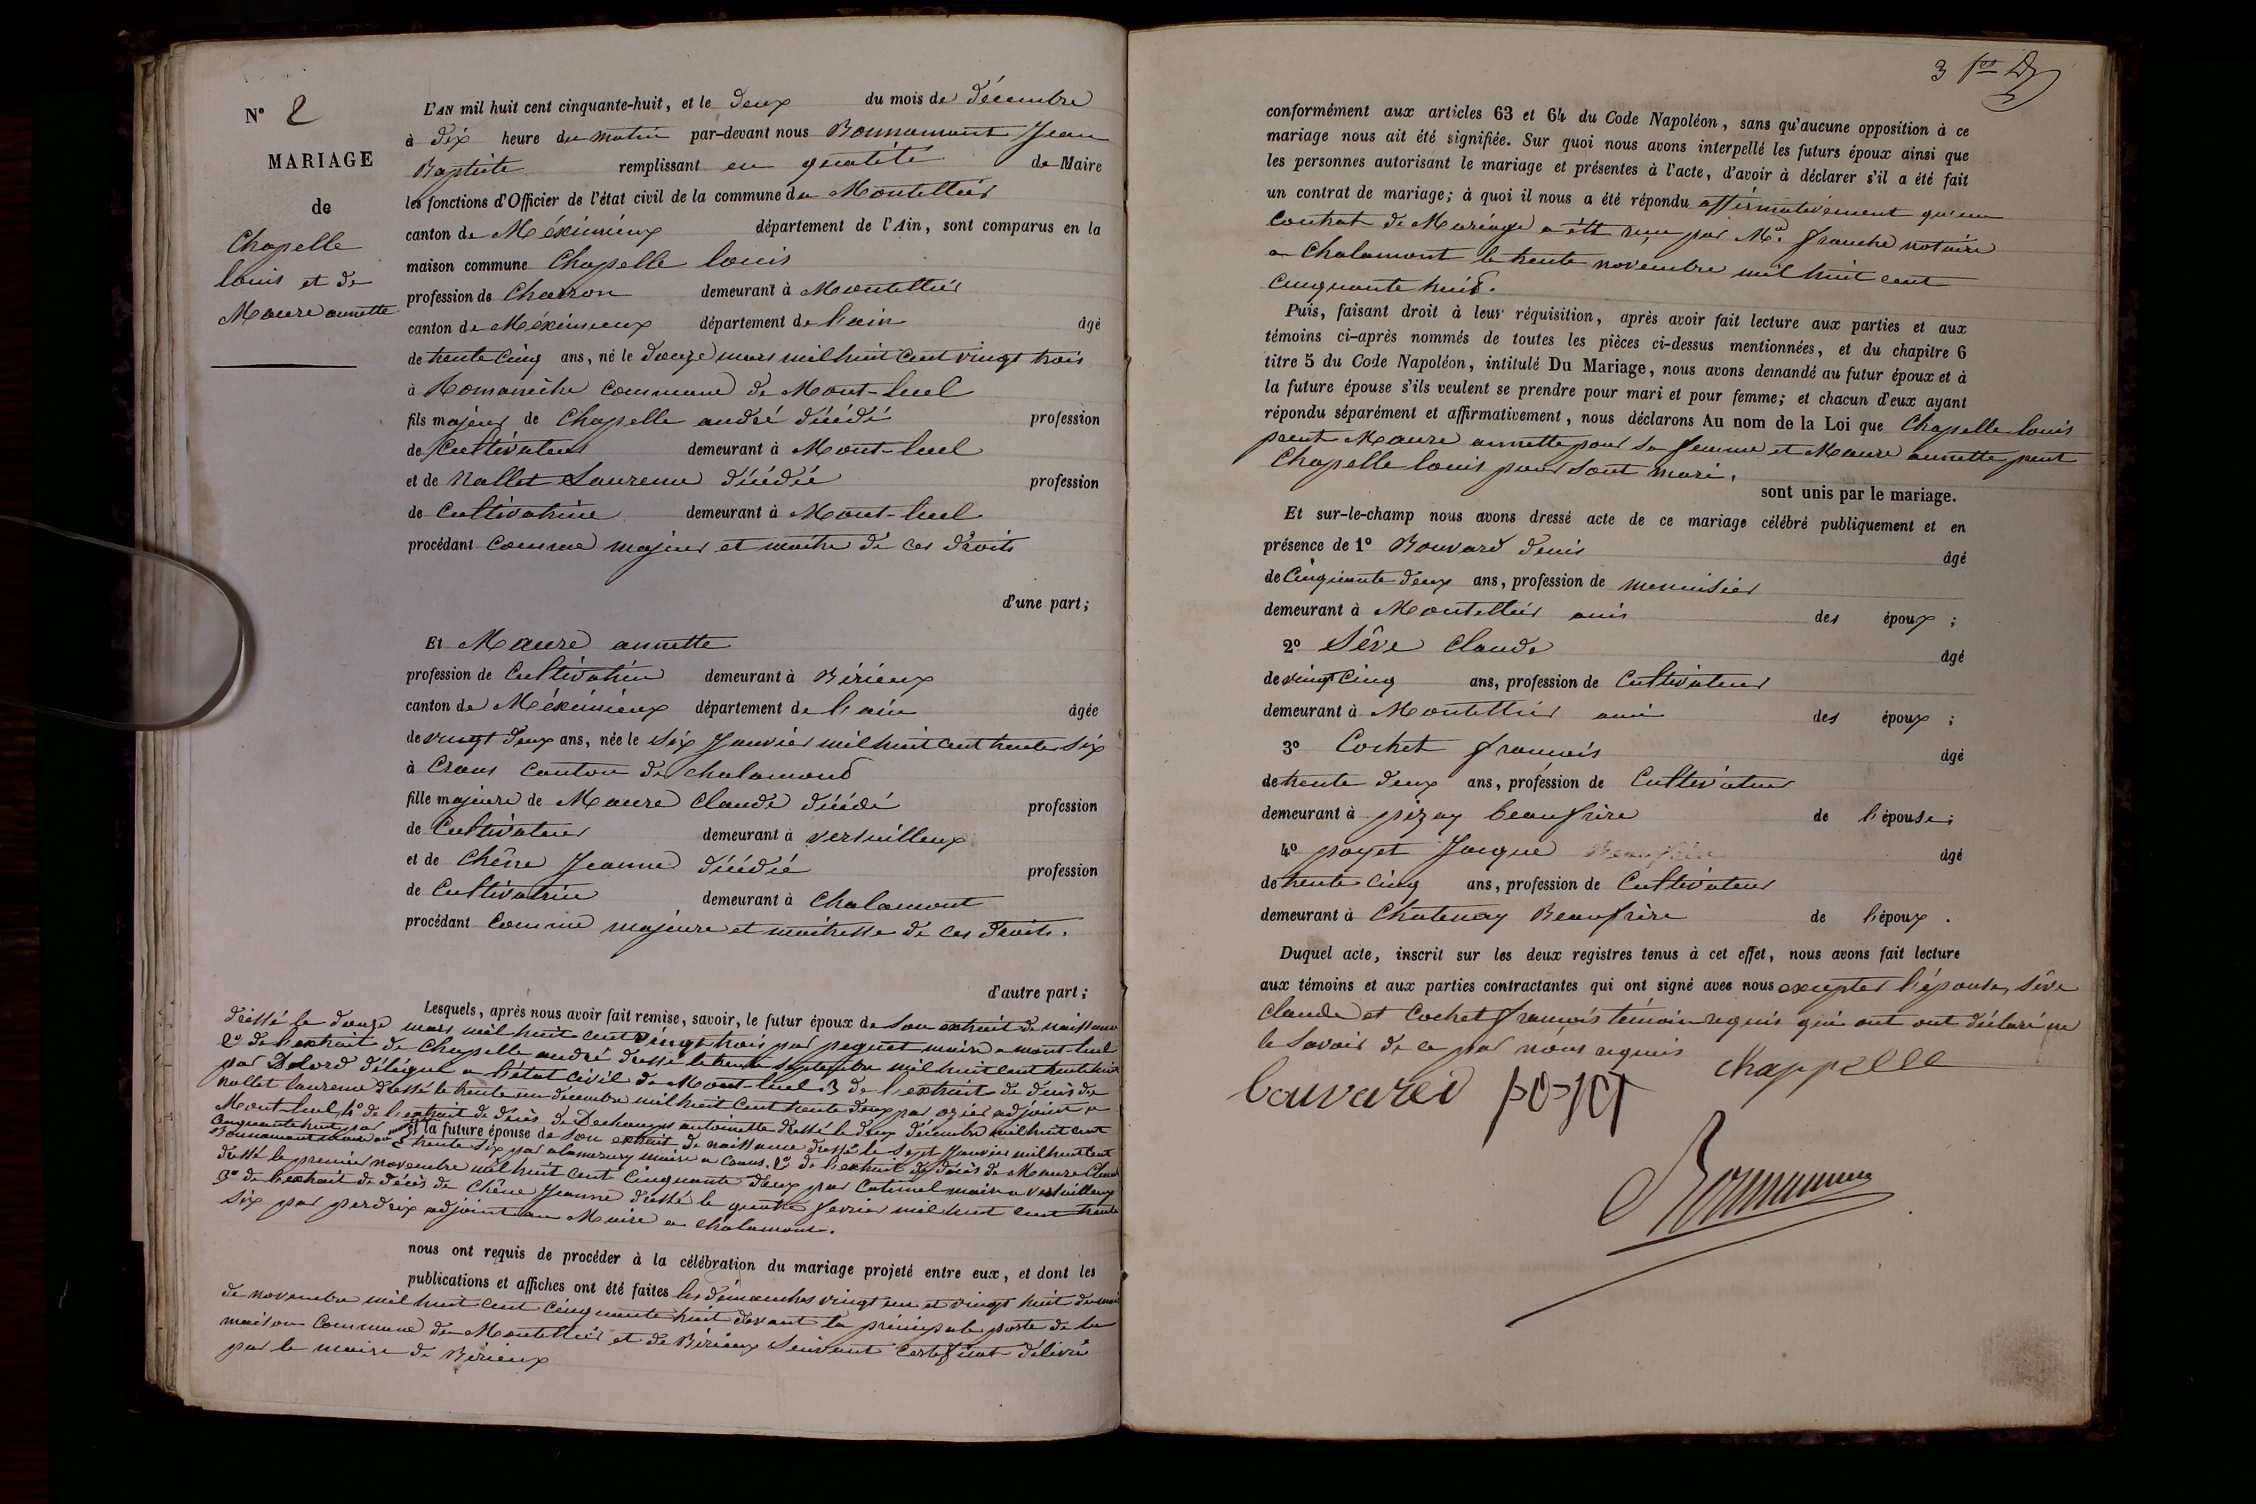 N° 2
MARIAGE
de
Chapelle
louis et de
Maure annette
L'AN mil huit cent cinquante-huit, et le deux du mois de décembre
à dix heure du matin par-devant nous Bonnamour Jean
Baptiste remplissant en qualité de Maire
les fonctions d'Officier de l'état civil de la commune de Montellier
canton de Méximieux département de l'Ain, sont comparus en la
maison commune Chapelle louis
profession de Charron demeurant à Montellier
canton de Méximieux département de l'ain âgé
de trente cinq ans, né le douze mars mil huit cent vingt trois
à Romanèche commune de Mont-luel
fils majeur de Chapelle andré décédé profession
de Cultivateur demeurant à Mont-luel
et de Nallet Laurence décédée profession
de Cultivatrice demeurant à Mont-luel
procédant comme majeur et maitre de ces droits
d'une part;
Et Maure annette
profession de Cultivatrice demeurant à Birieux
canton de Méximieux département de l'ain âgée
de vingt deux ans, née le six Janvier mil huit cent trente six
à Crans canton de chalamond
fille majeure de Maure Claude décédé profession
de Cultivateur demeurant à versailleux
et de Chêne Jeanne décédée profession
de Cultivatrice demeurant à Chalamont
procédant comme majeure et maitresse de ces droits.
d'autre part;
Lesquels, après nous avoir fait remise, savoir, le futur époux de son extrait de naissance
dressé le douze mars mil huit cent vingt trois par peguet maire a mont-luel
2° de l'extrait de Chapelle andré dressé le trente septembre mil huit cent trente huit
par Delord délégué a l'état civil de Mont-luel 3 de l'extrait de décès de
Nallet laurence dressé le trente un décembre mil huit cent trente deux par ozier adjoint a
Mont-luel 4° de l'extrait de décès de Dechamps antoinette dressé le deux décembre mil huit cent
Cinquante huit par
Bonnamour maire et la future épouse de son extrait de naissance dressé le sept Janvier mil huit cent
trente six par maire a Crans. 2° de l'extrait de décès de Maure Claude
dressé le premier novembre mil huit cent Cinquante deux par maire a versailleux
3° de l'extrait de décès de Chêne Jeanne dressé le quatre fevrier mil huit cent trente
six par perdrix adjoint au Maire a Chalamont.
nous ont requis de procéder à la célébration du mariage projeté entre eux, et dont les
publications et affiches ont été faites les dimanches vingt un et vingt huit du mois
de novembre mil huit cent cinquante huit devant la principale porte de la
maison Commune de Montellier et de Birieux suivant certificat délivré
par le maire de Birieux
3
conformément aux articles 63 et 64 du Code Napoléon, sans qu'aucune opposition à ce
mariage nous ait été signifiée. Sur quoi nous avons interpellé les futurs époux ainsi que
les personnes autorisant le mariage et présentes à l'acte, d'avoir à déclarer s'il a été fait
un contrat de mariage; à quoi il nous a été répondu affirmativement qu'un
contrat de Mariage a été reçu par Me. franche notaire
a Chalamont le trente novembre mil huit cent
cinquante huit.
Puis, faisant droit à leur réquisition, après avoir fait lecture aux parties et aux
témoins ci-après nommés de toutes les pièces ci-dessus mentionnées, et du chapitre 6
titre 5 du Code Napoléon, intitulé Du Mariage, nous avons demandé au futur époux et à
la future épouse s'ils veulent se prendre pour mari et pour femme; et chacun d'eux ayant
répondu séparément et affirmativement, nous déclarons Au nom de la Loi que Chapelle louis
prent Maure annette pour sa femme et Maure annette prent
Chapelle louis pour sont mari.
sont unis par le mariage.
Et sur-le-champ nous avons dressé acte de ce mariage célébré publiquement et en
présence de 1° Bouvard denis âgé
de Cinquante deux ans, profession de menuisier
demeurant à Montellier ami des époux ;
2° Sêve Claude âgé
de vingt Cinq ans, profession de Cultivateur
demeurant à Montellier ami des époux ;
3° Cochet francois âgé
de trente deux ans, profession de Cultivateur
demeurant à pizay beaufrère de l'épouse;
4° poyet Jacque âgé
de trente Cinq ans, profession de Cultivateur
demeurant à Chatenay Beaufrère de l'époux.
Duquel acte, inscrit sur les deux registres tenus à cet effet, nous avons fait lecture
aux témoins et aux parties contractantes qui ont signé avec nous excepter l'épouse, Sêve
Claude et Cochet francois témoin requis qui ont ont déclaré ne
le savoir de ce par nous requis
chappelle
bouvared poyet
Bonnamour